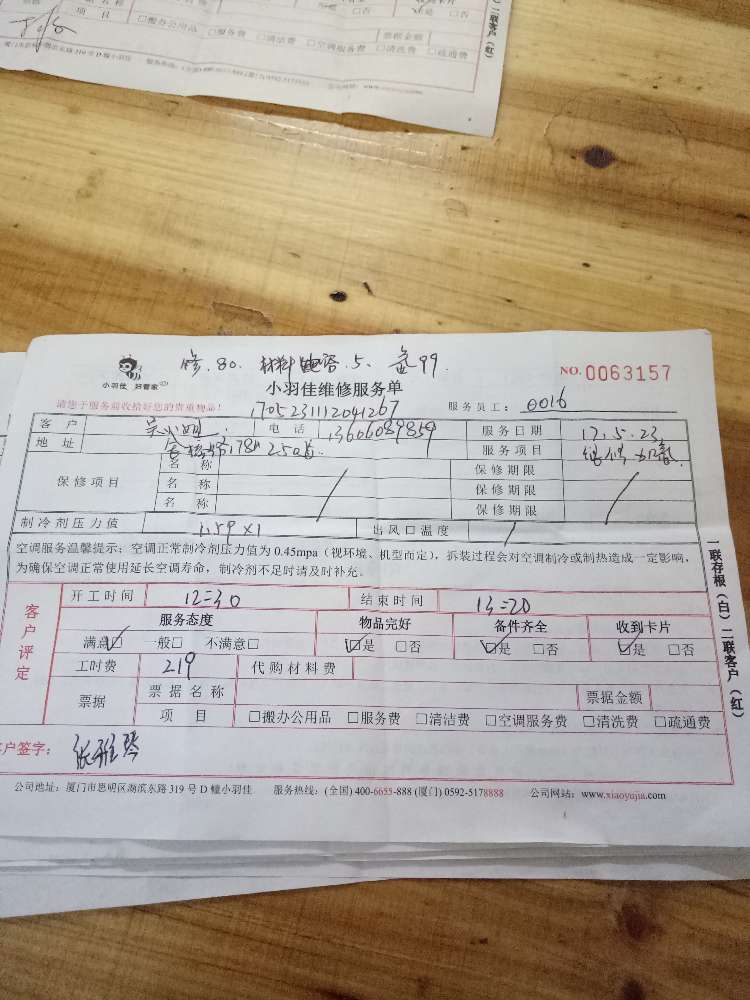 项 目 □搬办公用品 □服务费 □清洁费 □空调服务费 □清洗费 □疏通费
票据金额
二联客户（红）
修.80. 材料 5.
小羽佳 好管家
小羽佳维修服务单
NO.0063157
请您于服务前收拾好您的贵重物品！
1705231112041267
服务员工： 0016
客 户 吴小姐. 电 话 13606089859 服务日期 17.5.23
地 址 服务项目
保修项目 名 称 保修期限
名 称 保修期限
名 称 保修期限
制冷剂压力值 出风口温度
空调服务温馨提示：空调正常制冷剂压力值为 0.45mpa（视环境、机型而定），拆装过程会对空调制冷或制热造成一定影响，
为确保空调正常使用延长空调寿命，制冷剂不足时请及时补充。
客户评定
开工时间 12=30 结束时间 13=20
服务态度 物品完好 备件齐全 收到卡片
满意☑ 一般□ 不满意□ ☑是 □否 ☑是 □否 ☑是 □否
工时费 219 代购材料费
票据 票据名称 票据金额
项 目 □搬办公用品 □服务费 □清洁费 □空调服务费 □清洗费 □疏通费
户签字： 张雅琴
一联存根（白）二联客户（红）
公司地址：厦门市思明区湖滨东路 319 号 D 幢小羽佳 服务热线：(全国) 400-6655-888 (厦门) 0592-5178888 公司网站：www.xiaoyujia.com